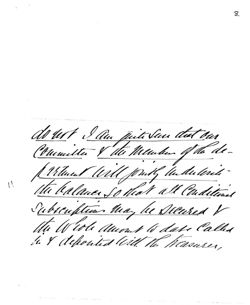 8
do not I am quite sure that our
Committee & the Members of the de-
partment will jointly underwrite
the balance, so that all Conditional
Subscriptions may be secured &
the whole amount to date called
in & deposited with the treasurer,